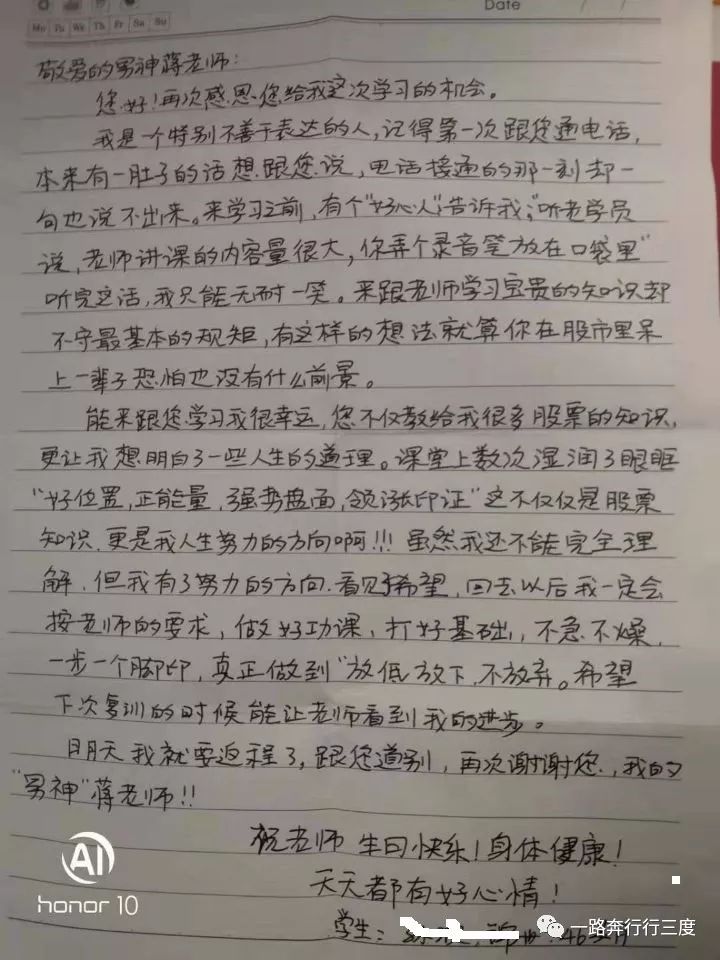 Date
Mo Tu We Th Fr Sa Su
敬爱的男神蒋老师:
您好!再次感恩您给我这次学习的机会。
我是一个特别不善于表达的人,记得第一次跟您通电话,
本来有一肚子的话想跟您说,电话接通的那一刻却一
句也说不出来。来学习之前,有个"好心人"告诉我;"听老学员
说,老师讲课的内容量很大,你弄个录音笔放在口袋里"
听完这话,我只能无耐一笑。来跟老师学习宝贵的知识却
不守最基本的规矩,有这样的想法就算你在股市里呆
上一辈子恐怕也没有什么前景。
能来跟您学习我很幸运,您不仅教给我很多股票的知识,
更让我想明白了一些人生的道理。课堂上数次湿润了眼眶
"好位置,正能量,强势盘面,领涨印证"这不仅仅是股票
知识,更是我人生努力的方向啊!!!虽然我还不能完全理
解,但我有了努力的方向,看见了希望,回去以后我一定会
按老师的要求,做好功课,打好基础,不急不燥,
一步一个脚印,真正做到"放低放下,不放弃。希望
下次复训的时候能让老师看到我的进步。
明天我就要返程了,跟您道别,再次谢谢您,我的
"男神"蒋老师!!
祝老师生日快乐!身体健康!
天天都有好心情!
学生:
AI
honor 10
一路奔行行三度